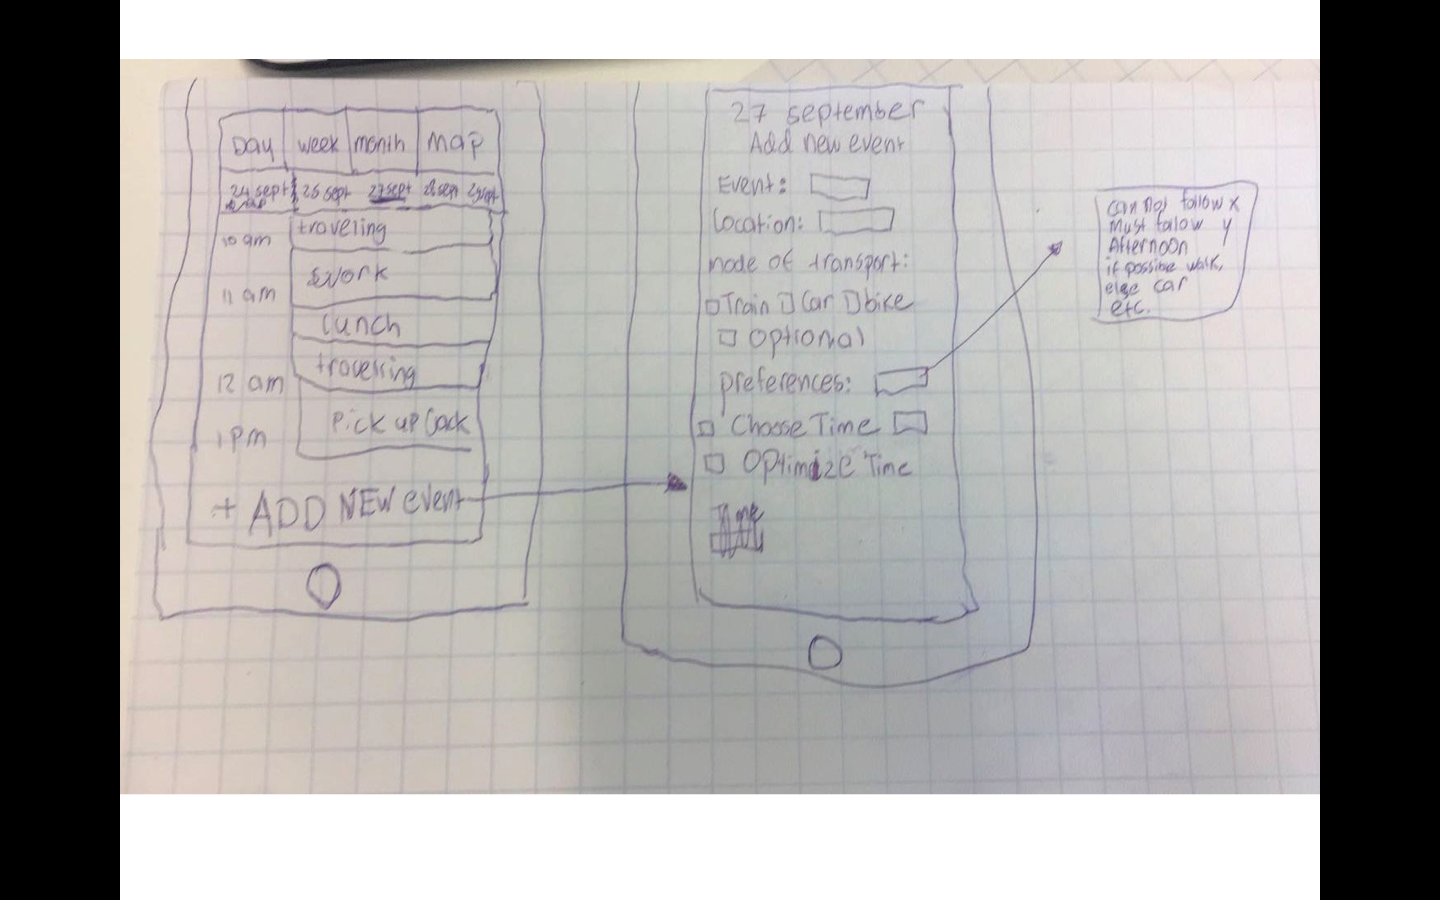 Day week month map
24 sept 25 sept 27 sept 28 sep 29 sept
10 am traveling
work
11 am
lunch
travelling
12 am
Pick up
1 pm
+ ADD NEW event
27 september
Add new event
Event:
Location:
mode of transport:
Train Car bike
Optional
preferences:
Choose Time
Optimize Time
Time
can not follow x
Must follow y
Afternoon
if possible walk,
else car
etc.